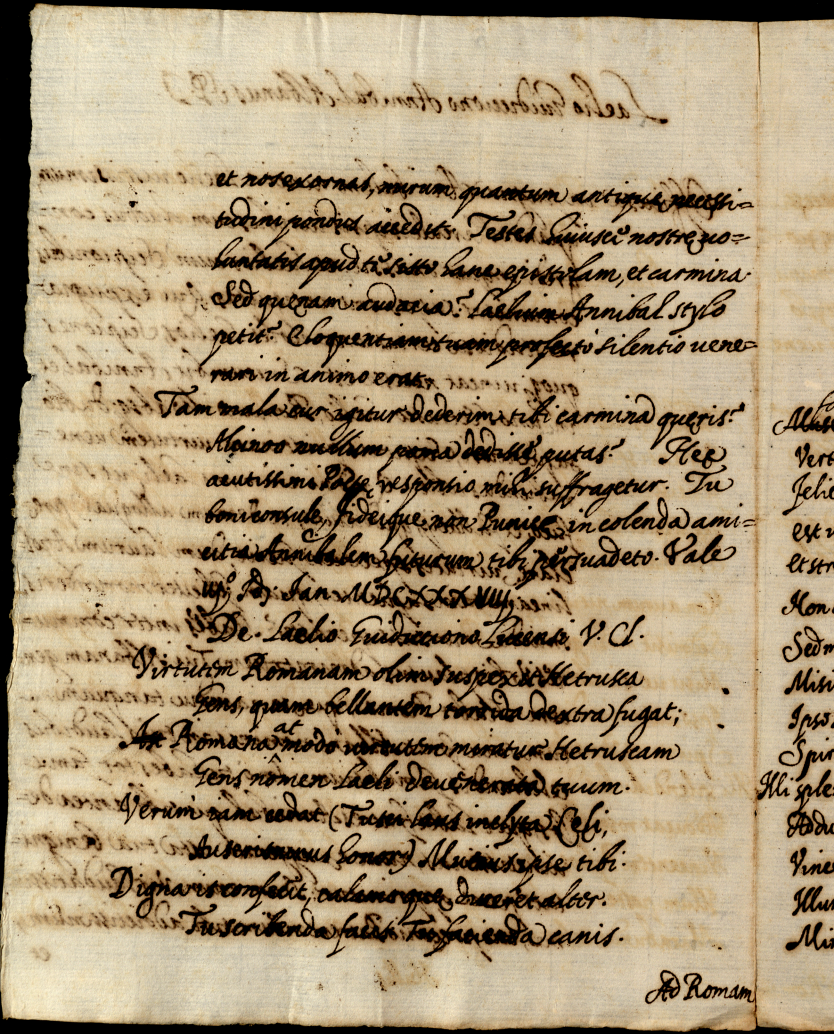 et nos exornas, mirum quantum antiquę necessi=
tudini pondus accedit. Testes huiusce nostrę uo=
luntatis apud te sisto hanc epistolam, et carmina.
Sed quęnam audacia? Laelium Annibal stylo
petit? Eloquentiam tuam profecto silentio uene=
rari in animo erat.
Tam mala cur igitur dederim tibi carmina quęris?
Alcinoo nullum poma dedisse putas? Hęc
acutissimi Poetę responsio mihi suffragetur. Tu
boni consule, fideique non Punicę in colenda ami=
citia Annibalem futurum tibi persuadeto. Vale
Id. Ian.
De Laelio Guidicciono Lucensi V. Cl.
Virtutem Romanam olim suspexit Hetrusca
Gens, quam bellantem torrida dextra fugat;
At Romana modo uirtutem miratur Hetruscam
Gens nomen Laeli deuenerata tuum.
Verum iam cedat (Tusci laus inclyta Cęli,
Ausoniusque honor) Mutius ipse tibi.
Dignaris confecit, calamoque duceret alter.
Tu scribenda facis: Tu facienda canis.
Ad Romam